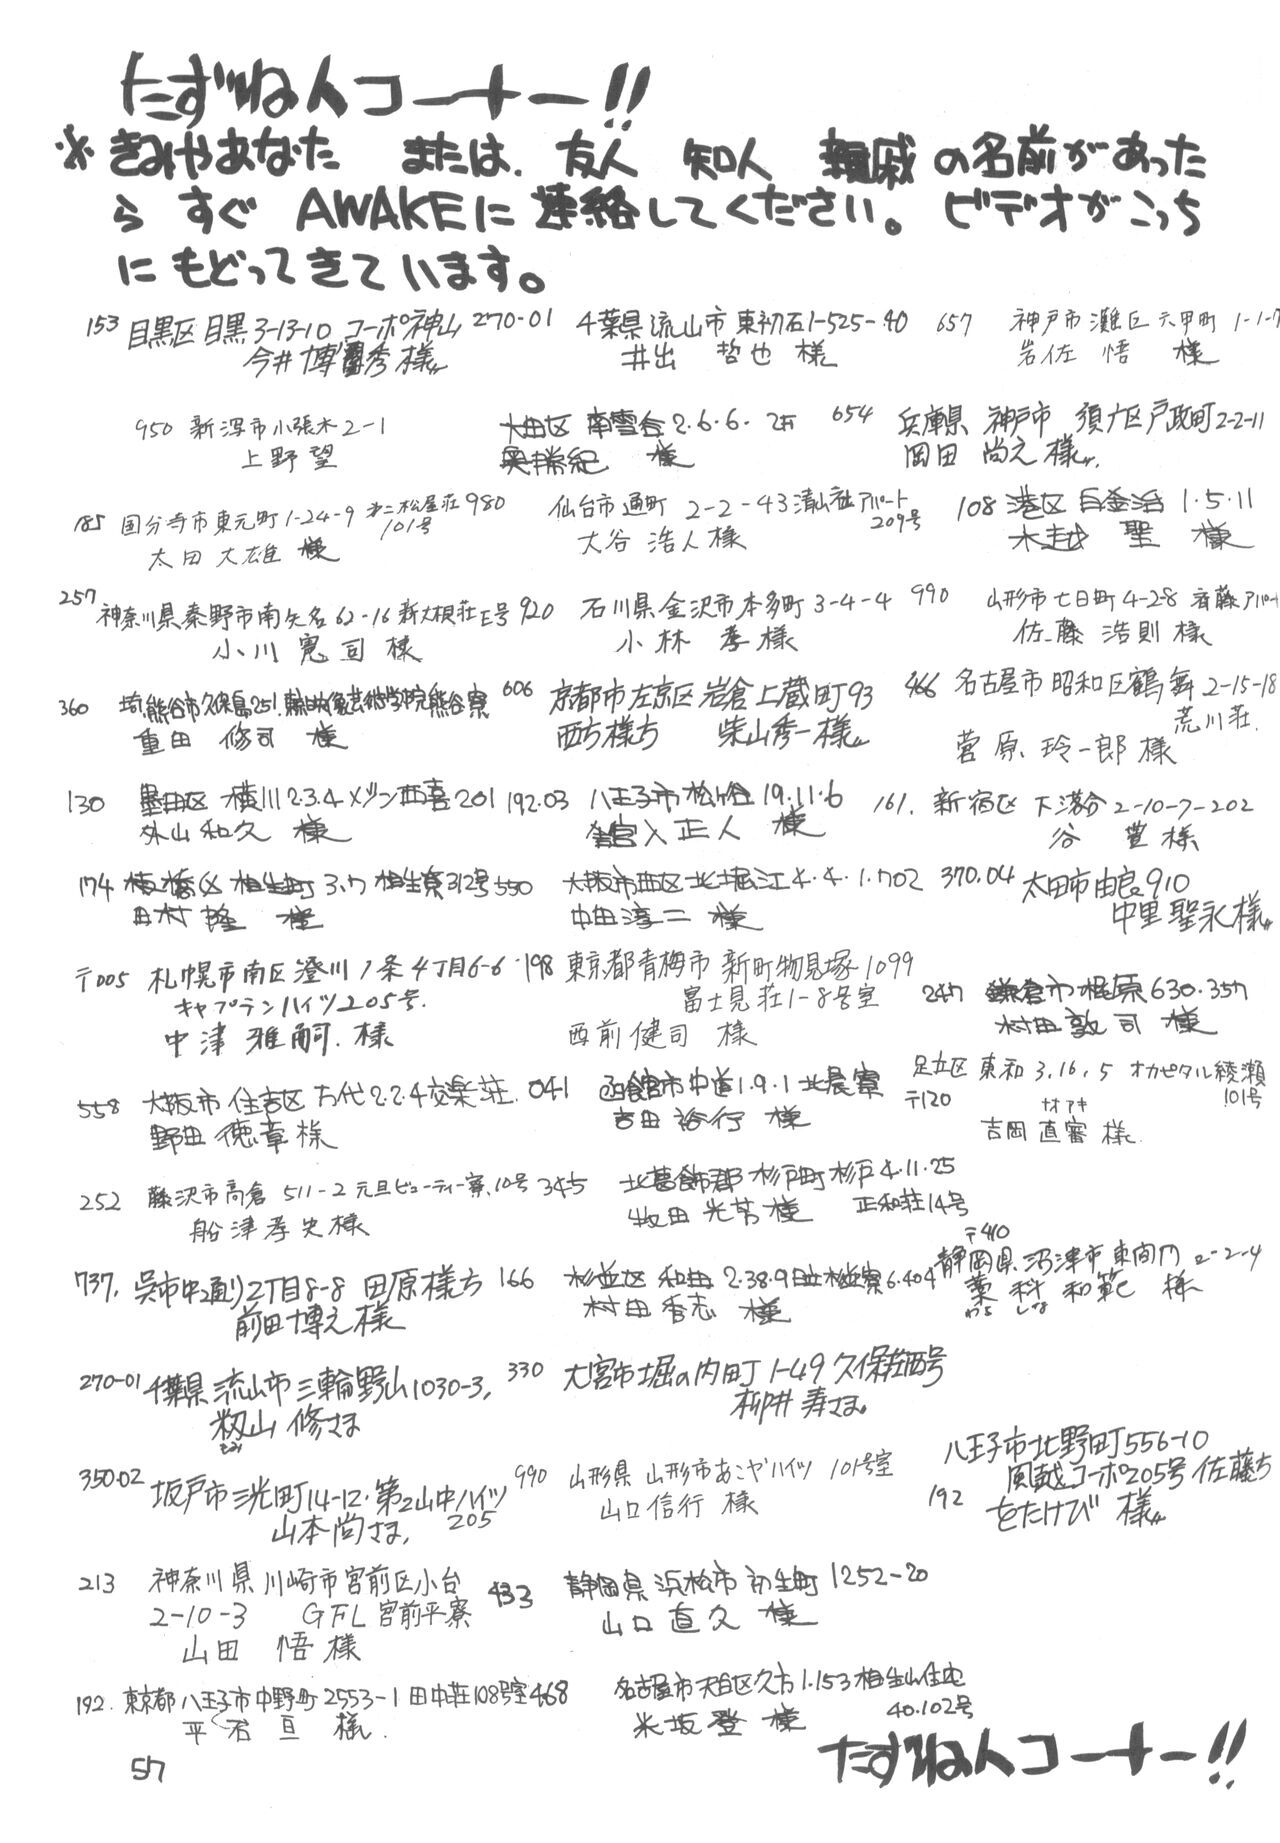 たずね人コーナー!!
※きみやあなた または、友人 知人 親戚の名前があった
ら すぐ AWAKEに連絡してください。ビデオがこっち
にもどってきています。
153 目黒区目黒3-13-10 コーポ神山
今井博秀様
270-01 千葉県流山市東初石1-525-40
井出 哲也 様
657 神戸市灘区六甲町 1-1-7
岩佐 悟 様
950 新潟市小張木2-1
上野望
大田区 南雪谷2.6.6.
奥 紀 様
654 兵庫県 神戸市 須 区戸政町2-2-11
岡田 尚之様
185 国分寺市東元町1-24-9 第二松屋荘
101号
太田 大雄 様
980 仙台市通町 2-2-43 清山荘アパート
209号
大谷 浩人様
108 港区 白金台 1.5.11
木越 聖 様
257 神奈川県秦野市南矢名62-16 新大根荘E号
小川 憲司 様
920 石川県金沢市本多町3-4-4
小林 孝様
990 山形市七日町4-28 斉藤アパート
佐藤 浩則様
360 埼 熊谷市久保島251. 熊谷寮
重田 修司 様
606 京都市左京区岩倉上蔵町93
西方様方 柴山秀一様
466 名古屋市昭和区鶴舞2-15-18
荒川荘.
菅原 玲一郎様
130 墨田区 横川2.3.4メゾン西喜201
外山 和久 様
192.03 八王子市松が谷19.11.6
宮入 正人 様
161. 新宿区 下落合2-10-7-202
谷 豊 様
174 板橋区 相生町3.7 相生寮312号
田村 隆 様
550 大阪市西区北堀江4.4.1.702
中田淳二 様
370.04 太田市由良910
中里聖永様
〒005 札幌市南区澄川7条4丁目6-6
キャプテンハイツ205号.
中津 雅嗣. 様
198 東京都青梅市新町物見塚1099
富士見荘1-8号室
西前健司 様
247 鎌倉市梶原630.357
村田敦司 様
558 大阪市住吉区万代2.2.4交楽荘.
野田 徳章様
041 函館市中道1.9.1北晨寮
吉田 裕行 様
足立区 東和 3.16.5 オカピタル綾瀬
101号
〒120
ナオアキ
吉岡 直審 様
252 藤沢市高倉 511-2 元旦ビューティー寮、10号
船津孝史様
345 北葛飾郡 杉戸町杉戸4.11.25
牧田 光芳 様 正和荘14号
737. 呉市中通り2丁目8-8 田原様方
前田博之様
166 杉並区 和田 2.38.9日立 寮6.404
村田香志 様
〒410
静岡県沼津市東間門 2-2-4
藁科 和範 様
わら しな
270-01 千葉県流山市三輪野山1030-3,
籾山 修さま
もみ
330 大宮市堀の内町1-49久保荘西号
柳井寿さま。
350-02 坂戸市三光町14-12.第2山中ハイツ
205
山本尚さま,
990 山形県 山形市あこやハイツ 101号室
山口信行 様
八王子市北野町556-10
風越コーポ205号 佐藤方
192 をたけび 様
213 神奈川県川崎市宮前区小台
2-10-3 GFL宮前平寮
山田 悟様
433 静岡県浜松市初生町1252-20
山口直久 様
192. 東京都八王子市中野町2553-1 田中荘108号室
平石亘 様.
468 名古屋市天白区久方1.153相生山住宅
40.102号
米坂登 様
57
たずね人コーナー!!